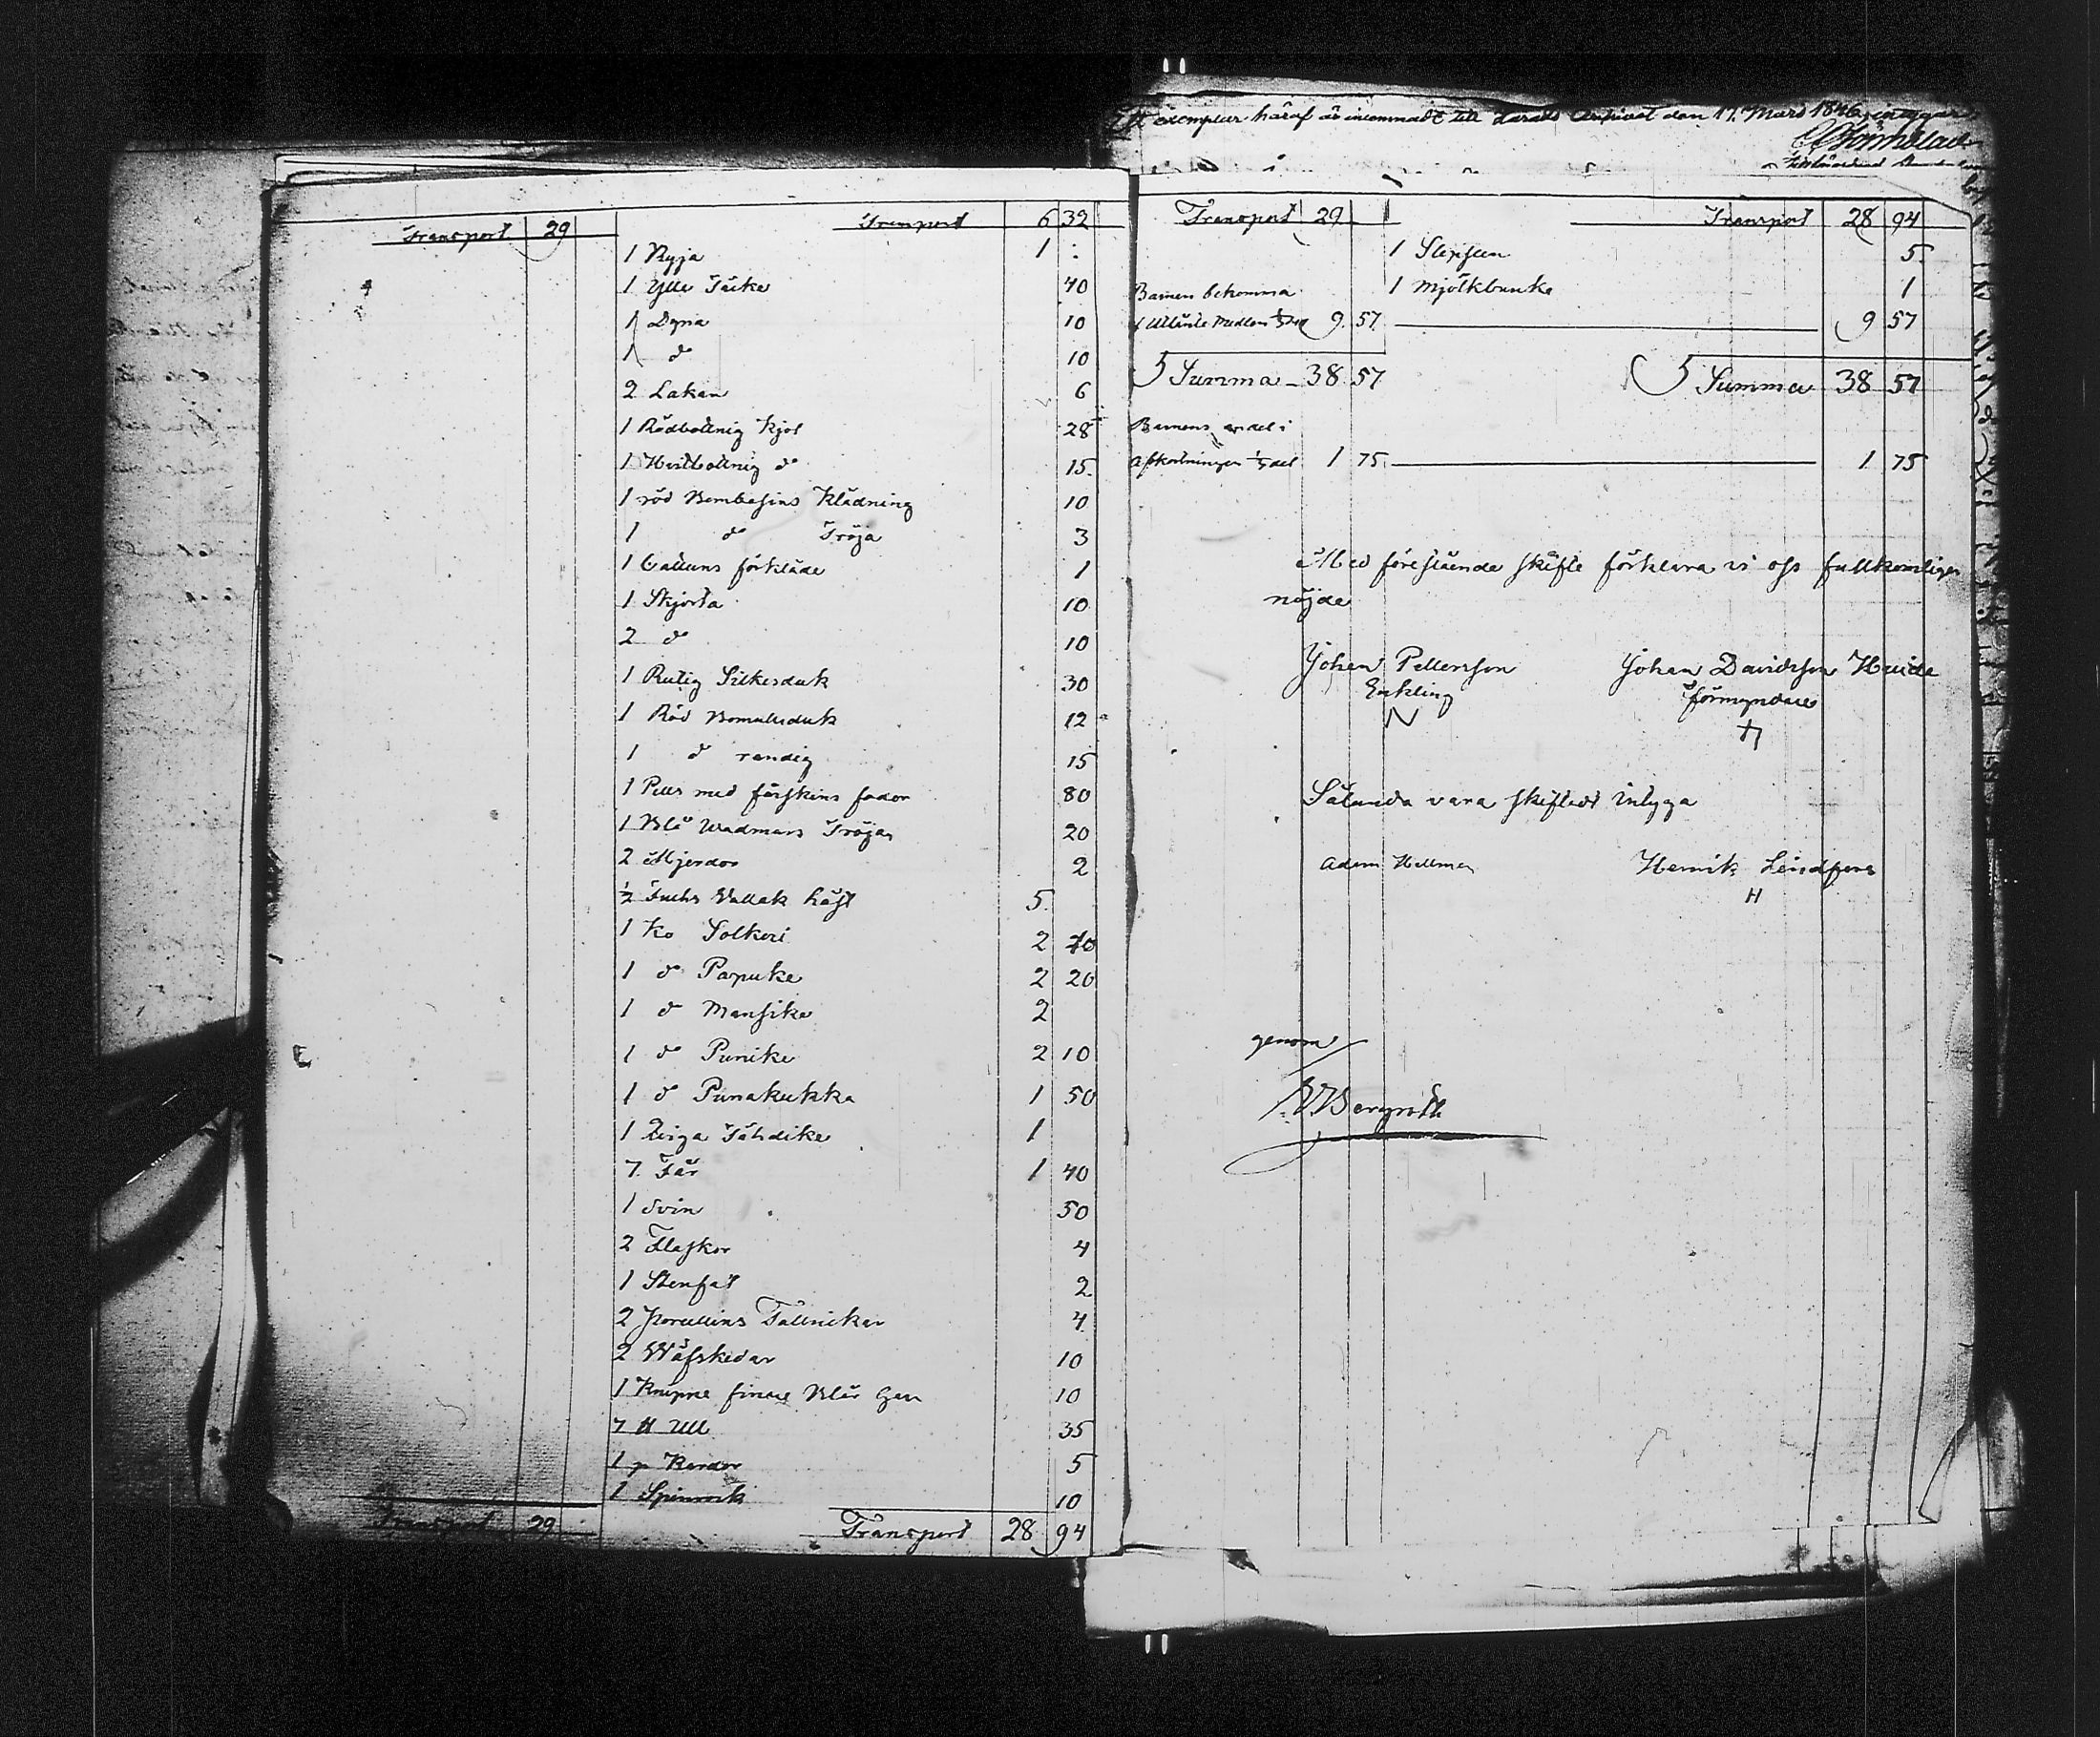 Transport 29 Transport 6 32
1 Ryja 1 :
1 Ylle Täcke 40
1 Dyna 10
1 d:o 10
2 Lakan 6
1 Rödbottnig Kjol 28
1 Hvitbottnig d:o 15
1 röd Bombasins Klädning 10
1 d:o Tröja 3
1 Cattuns förkläde 1
1 Skjorta 10
2 d:o 10
1 Rutig Silkesduk 30
1 Röd Bomullsduk 12
1 d:o randig 15
1 Pells med fårskins foder 80
1 Blå Wadmars Tröja 20
2 Mjerdor 2
½ Fuchs Vallak häst 5
1 Ko Solkeri 2 70
1 d:o Papuke 2 20
1 d:o Mansike 2
1 d:o Punike 2 10
1 d:o Punakukka 1 50
1 Qviga Tähdike 1
7 Får 1 40
1 Svin 50
2 Flaskor 4
1 Stenfat 2
2 Porcellins Tallrickar 4
2 Wäfskedar 10
1 Knippe finare Blår Gan 10
7 ℔ Ull 35
1 p Kardor 5
1 Spinrock 10
Transport 29 Transport 28 94
Ett exemplar häraf är inkommadt till Härads Archivet den 17 Mars 1846, intygar
Transport 29 Transport 28 94
1 Slipsten 5
Barnen bekomma 1 Mjölkbunke 1
9 57 9 57
Summa 38 57 Summa 38 57
Barnens andel i
afkortningen ⅓ del 1 75 1 75
Med förestående skifte förklara vi oss fullkomligen
nöjde
Johan Pettersson Johan Davidsson Huide
Enkling förmyndare
N
Sålunda vara skiftadt intyga
Adam Hellman Henrik Lindfors
H
genom
Bergroth